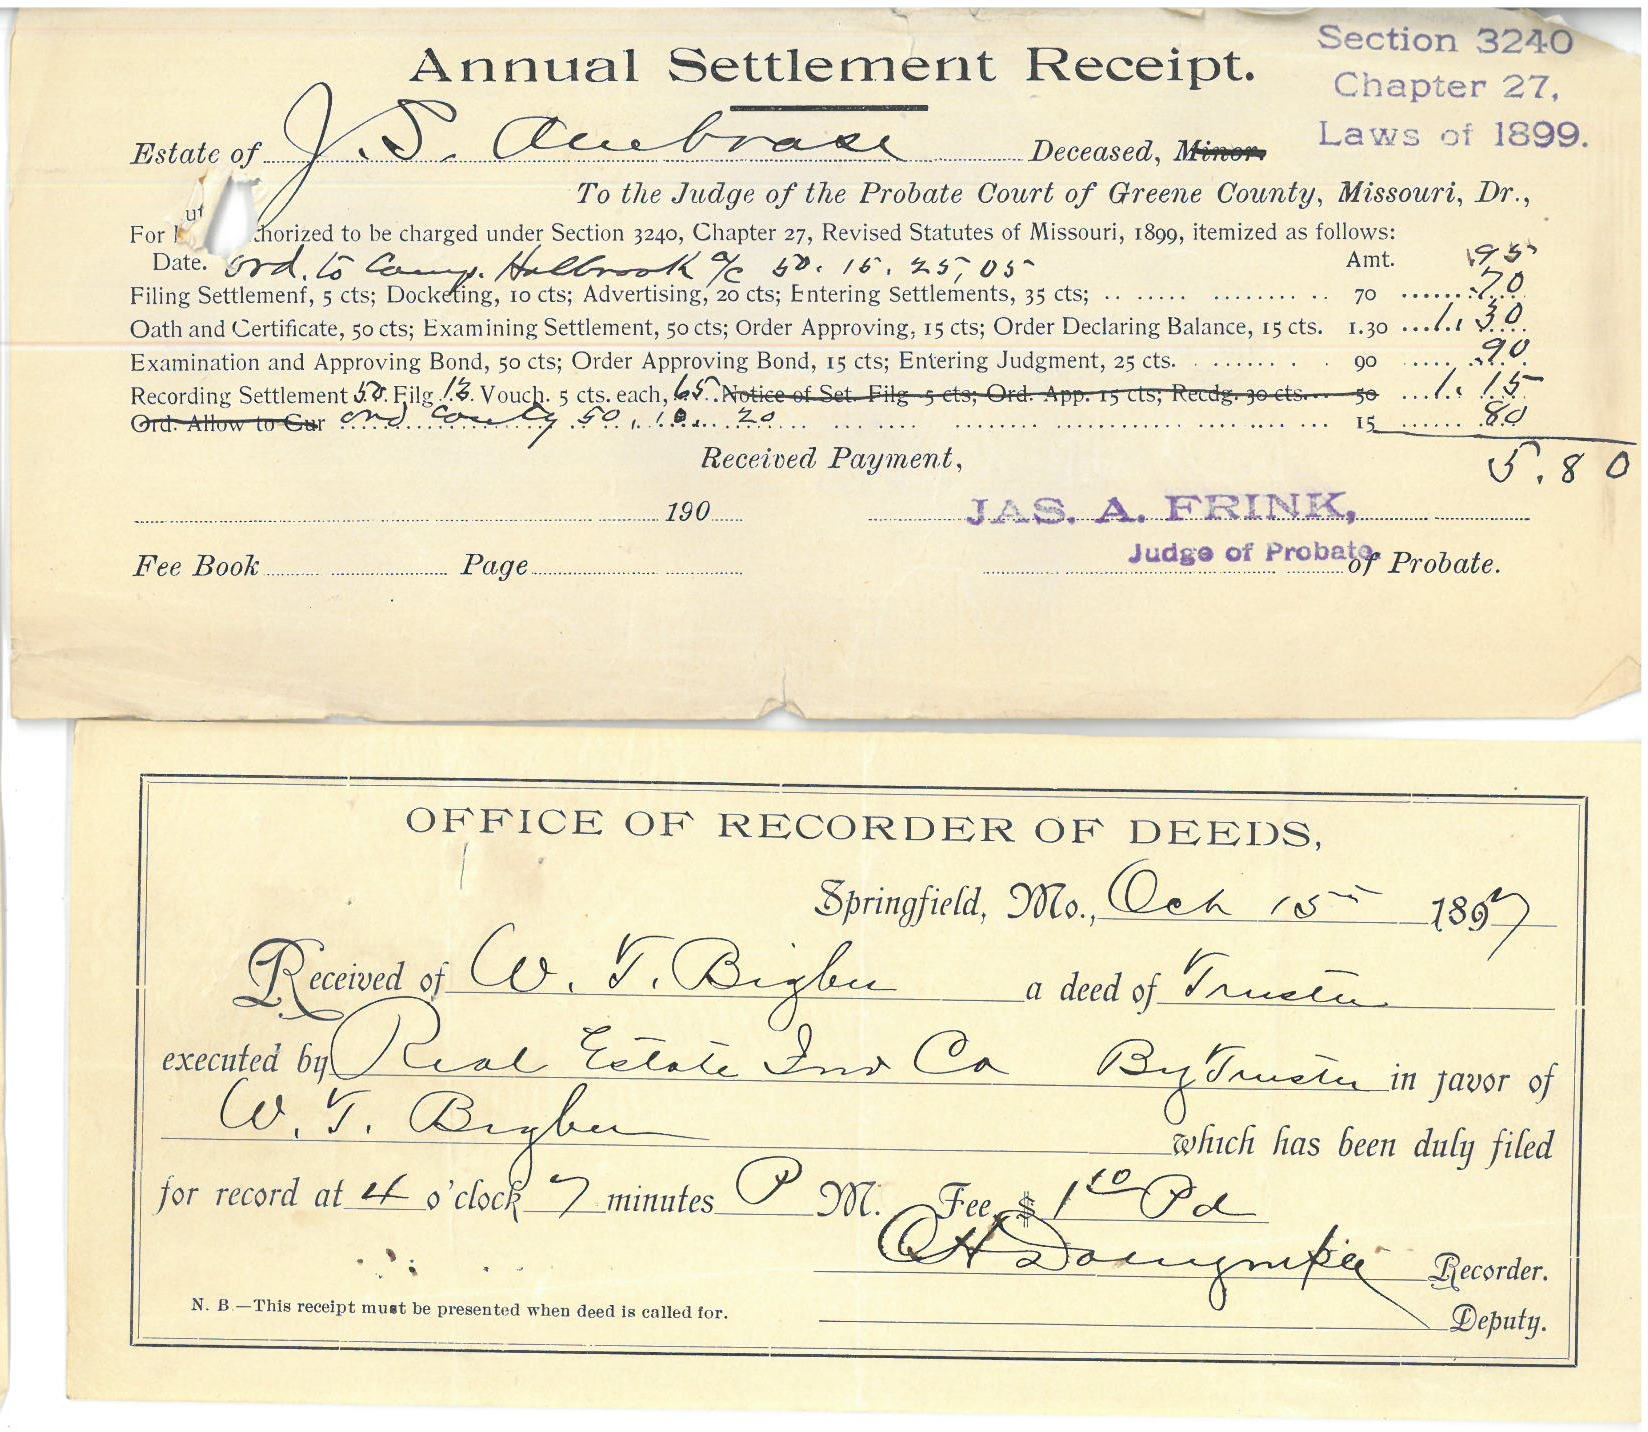 Annual Settlement Receipt.
Section 3240
Chapter 27,
Laws of 1899.
Estate of J. S. Ambrose Deceased, Minor.
To the Judge of the Probate Court of Greene County, Missouri, Dr.,
For horized to be charged under Section 3240, Chapter 27, Revised Statutes of Missouri, 1899, itemized as follows:
Date. Ord. to Comp. Holbrook a/c 50. 15. 25, 05 Amt. 95
Filing Settlemenf, 5 cts; Docketing, 10 cts; Advertising, 20 cts; Entering Settlements, 35 cts; 70 .70
Oath and Certificate, 50 cts; Examining Settlement, 50 cts; Order Approving, 15 cts; Order Declaring Balance, 15 cts. 1.30 1.30
Examination and Approving Bond, 50 cts; Order Approving Bond, 15 cts; Entering Judgment, 25 cts. 90 .90
Recording Settlement 50. Filg 13. Vouch. 5 cts. each, 65. Notice of Set. Filg 5 cts; Ord. App. 15 cts; Recdg. 30 cts. 50 1.15
Ord. Allow to Cur Ord County 50, 10. 20 15 80
Received Payment, 5.80
190 JAS. A. FRINK,
Judge of Probate
Fee Book Page of Probate.
OFFICE OF RECORDER OF DEEDS,
Springfield, Mo., Oct 15th 1897
Received of W. T. Bigbee a deed of Trustee
executed by Real Estate Inv Co By Trustee in favor of
W. T. Bigbee which has been duly filed
for record at 4 o'clock 7 minutes P M. Fee $ 1 10 Pd
Recorder.
N. B.—This receipt must be presented when deed is called for.
Deputy.